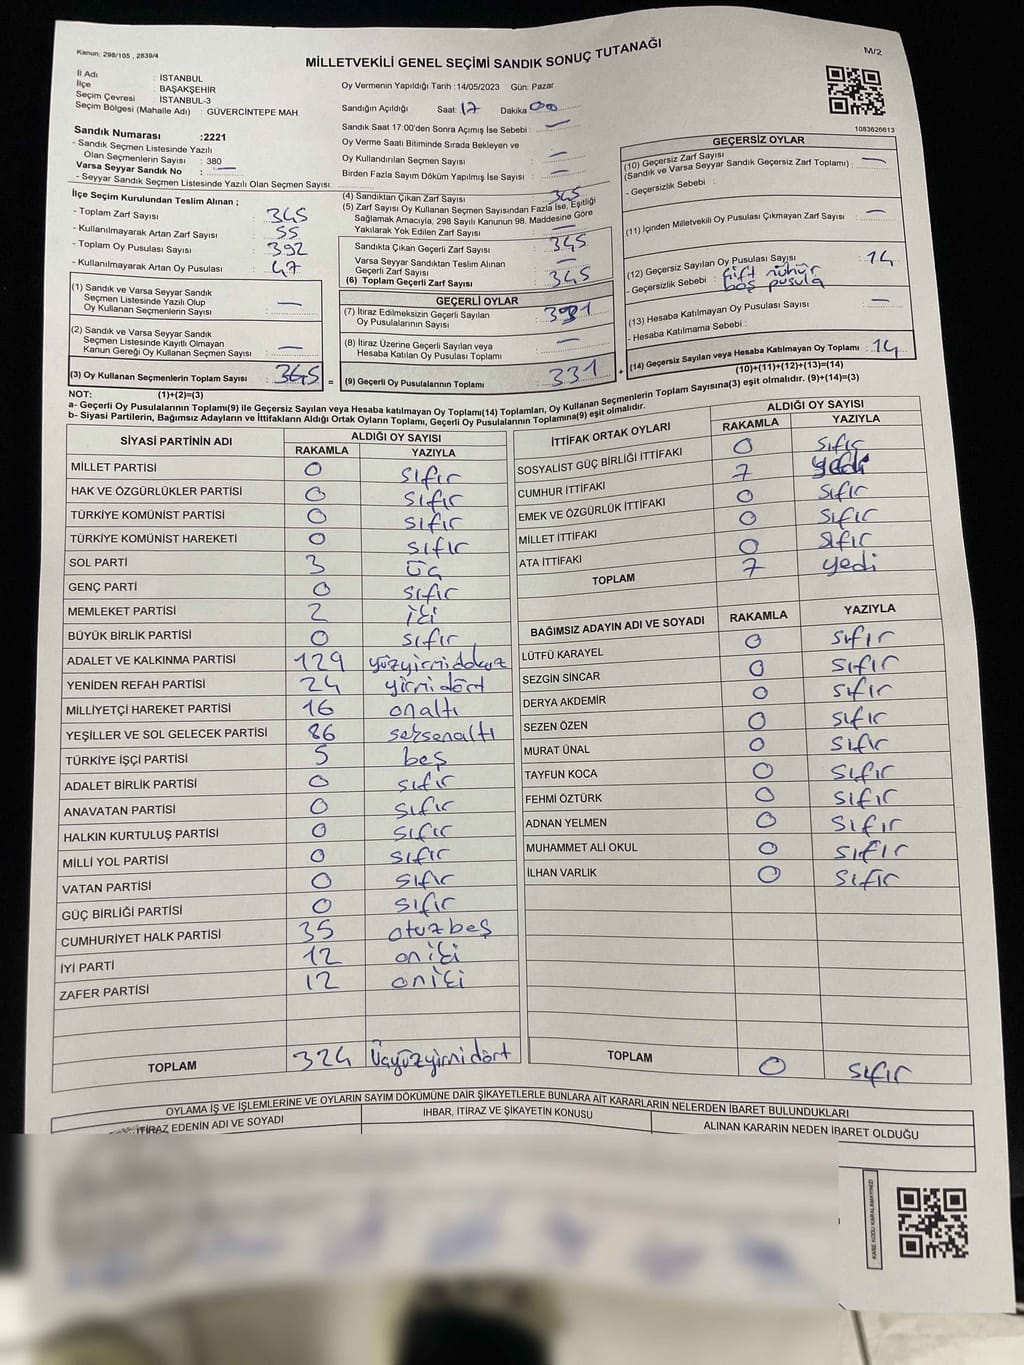 Kanun: 298/105 , 2839/4
MİLLETVEKİLİ GENEL SEÇİMİ SANDIK SONUÇ TUTANAĞI
M/2
İl Adı : İSTANBUL
İlçe : BAŞAKŞEHİR
Seçim Çevresi : İSTANBUL-3
Seçim Bölgesi (Mahalle Adı) : GÜVERCİNTEPE MAH
Oy Vermenin Yapıldığı Tarih : 14/05/2023 Gün: Pazar
Sandığın Açıldığı Saat: 17 Dakika 00
Sandık Saat 17:00'den Sonra Açımış İse Sebebi : —
Oy Verme Saati Bitiminde Sırada Bekleyen ve
Oy Kullandırılan Seçmen Sayısı : —
Birden Fazla Sayım Döküm Yapılmış İse Sayısı : —
1083626613
Sandık Numarası : 2221
- Sandık Seçmen Listesinde Yazılı
Olan Seçmenlerin Sayısı : 380
Varsa Seyyar Sandık No : —
- Seyyar Sandık Seçmen Listesinde Yazılı Olan Seçmen Sayısı:
İlçe Seçim Kurulundan Teslim Alınan ;
- Toplam Zarf Sayısı : 345
- Kullanılmayarak Artan Zarf Sayısı : 55
- Toplam Oy Pusulası Sayısı : 392
- Kullanılmayarak Artan Oy Pusulası : 47
(1) Sandık ve Varsa Seyyar Sandık
Seçmen Listesinde Yazılı Olup
Oy Kullanan Seçmenlerin Sayısı : —
(2) Sandık ve Varsa Seyyar Sandık
Seçmen Listesinde Kayıtlı Olmayan
Kanun Gereği Oy Kullanan Seçmen Sayısı : —
(3) Oy Kullanan Seçmenlerin Toplam Sayısı : 345 =
(1)+(2)=(3)
(4) Sandıktan Çıkan Zarf Sayısı : 345
(5) Zarf Sayısı Oy Kullanan Seçmen Sayısından Fazla İse, Eşitliği
Sağlamak Amacıyla; 298 Sayılı Kanunun 98. Maddesine Göre
Yakılarak Yok Edilen Zarf Sayısı : —
Sandıkta Çıkan Geçerli Zarf Sayısı : 345
Varsa Seyyar Sandıktan Teslim Alınan
Geçerli Zarf Sayısı : —
(6) Toplam Geçerli Zarf Sayısı : 345
GEÇERLİ OYLAR
(7) İtiraz Edilmeksizin Geçerli Sayılan
Oy Pusulalarının Sayısı : 331
(8) İtiraz Üzerine Geçerli Sayılan veya
Hesaba Katılan Oy Pusulası Toplamı : —
(9) Geçerli Oy Pusulalarının Toplamı : 331 +
GEÇERSİZ OYLAR
(10) Geçersiz Zarf Sayısı
(Sandık ve Varsa Seyyar Sandık Geçersiz Zarf Toplamı) : —
- Geçersizlik Sebebi :
(11) İçinden Milletvekili Oy Pusulası Çıkmayan Zarf Sayısı : —
(12) Geçersiz Sayılan Oy Pusulası Sayısı : 14
- Geçersizlik Sebebi : çift mühür
boş pusula
(13) Hesaba Katılmayan Oy Pusulası Sayısı : —
- Hesaba Katılmama Sebebi :
(14) Geçersiz Sayılan veya Hesaba Katılmayan Oy Toplamı : 14
(10)+(11)+(12)+(13)=(14)
NOT:
a- Geçerli Oy Pusulalarının Toplamı(9) ile Geçersiz Sayılan veya Hesaba katılmayan Oy Toplamı(14) Toplamları, Oy Kullanan Seçmenlerin Toplam Sayısına(3) eşit olmalıdır. (9)+(14)=(3)
b- Siyasi Partilerin, Bağımsız Adayların ve İttifakların Aldığı Ortak Oyların Toplamı, Geçerli Oy Pusulalarının Toplamına(9) eşit olmalıdır.
SİYASİ PARTİNİN ADI ALDIĞI OY SAYISI
RAKAMLA YAZIYLA
MİLLET PARTİSİ 0 sıfır
HAK VE ÖZGÜRLÜKLER PARTİSİ 0 sıfır
TÜRKİYE KOMÜNİST PARTİSİ 0 sıfır
TÜRKİYE KOMÜNİST HAREKETİ 0 sıfır
SOL PARTİ 3 üç
GENÇ PARTİ 0 sıfır
MEMLEKET PARTİSİ 2 iki
BÜYÜK BİRLİK PARTİSİ 0 sıfır
ADALET VE KALKINMA PARTİSİ 129 yüzyirmidokuz
YENİDEN REFAH PARTİSİ 24 yirmidört
MİLLİYETÇİ HAREKET PARTİSİ 16 onaltı
YEŞİLLER VE SOL GELECEK PARTİSİ 86 seksenaltı
TÜRKİYE İŞÇİ PARTİSİ 5 beş
ADALET BİRLİK PARTİSİ 0 sıfır
ANAVATAN PARTİSİ 0 sıfır
HALKIN KURTULUŞ PARTİSİ 0 sıfır
MİLLİ YOL PARTİSİ 0 sıfır
VATAN PARTİSİ 0 sıfır
GÜÇ BİRLİĞİ PARTİSİ 0 sıfır
CUMHURİYET HALK PARTİSİ 35 otuzbeş
İYİ PARTİ 12 oniki
ZAFER PARTİSİ 12 oniki
TOPLAM 324 Üçyüzyirmidört
İTTİFAK ORTAK OYLARI ALDIĞI OY SAYISI
RAKAMLA YAZIYLA
SOSYALİST GÜÇ BİRLİĞİ İTTİFAKI 0 sıfır
CUMHUR İTTİFAKI 7 yedi
EMEK VE ÖZGÜRLÜK İTTİFAKI 0 sıfır
MİLLET İTTİFAKI 0 sıfır
ATA İTTİFAKI 0 sıfır
TOPLAM 7 yedi
BAĞIMSIZ ADAYIN ADI VE SOYADI RAKAMLA YAZIYLA
LÜTFÜ KARAYEL 0 sıfır
SEZGİN SİNCAR 0 sıfır
DERYA AKDEMİR 0 sıfır
SEZEN ÖZEN 0 sıfır
MURAT ÜNAL 0 sıfır
TAYFUN KOCA 0 sıfır
FEHMİ ÖZTÜRK 0 sıfır
ADNAN YELMEN 0 sıfır
MUHAMMET ALİ OKUL 0 sıfır
İLHAN VARLIK 0 sıfır
TOPLAM 0 sıfır
OYLAMA İŞ VE İŞLEMLERİNE VE OYLARIN SAYIM DÖKÜMÜNE DAİR ŞİKAYETLERLE BUNLARA AİT KARARLARIN NELERDEN İBARET BULUNDUKLARI
İTİRAZ EDENİN ADI VE SOYADI İHBAR, İTİRAZ VE ŞİKAYETİN KONUSU ALINAN KARARIN NEDEN İBARET OLDUĞU
KARE KODU KARALAMAYINIZ!